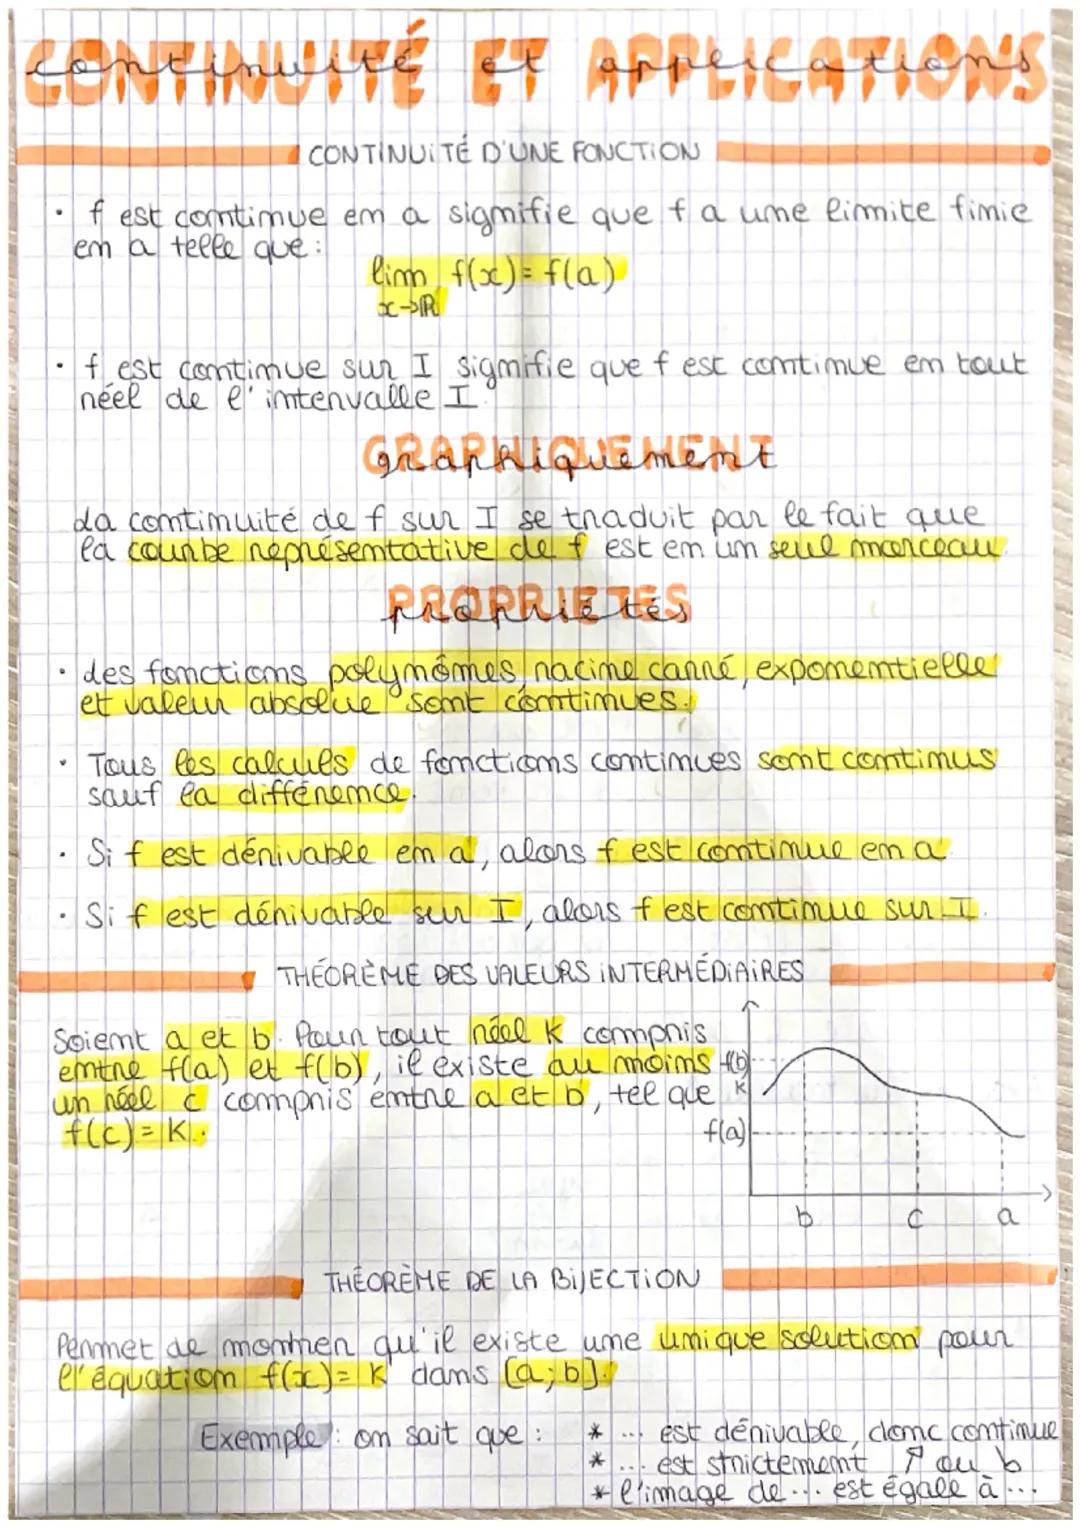 CONTINUITÉ ET APPLICATIONS
CONTINUITÉ D'UNE FONCTION
• f est continue en a signifie que f a une limite finie
en a telle que :
lim f(x) = f(a)
x→ℝ
• f est continue sur I signifie que f est continue en tout
réel de l'intervalle I.
GRAPHIQUEMENT
La continuité de f sur I se traduit par le fait que
la courbe représentative de f est en un seul morceau.
PROPRIÉTÉS
• Les fonctions polynômes, racine carré, exponentielle
et valeur absolue sont continues.
• Tous les calculs de fonctions continues sont continus
sauf la différence.
• Si f est dérivable en a, alors f est continue en a
• Si f est dérivable sur I, alors f est continue sur I.
THÉORÈME DES VALEURS INTERMÉDIAIRES
Soient a et b. Pour tout réel K compris
entre f(a) et f(b), il existe au moins
un réel c compris entre a et b, tel que
f(c) = K.
f(b)
K
f(a)
b c a
THÉORÈME DE LA BIJECTION
Permet de montrer qu'il existe une unique solution pour
l'équation f(x) = K dans [a;b].
Exemple : on sait que :
* ... est dérivable, donc continue
* ... est strictement ↗ ou ↘
* l'image de ... est égale à ...